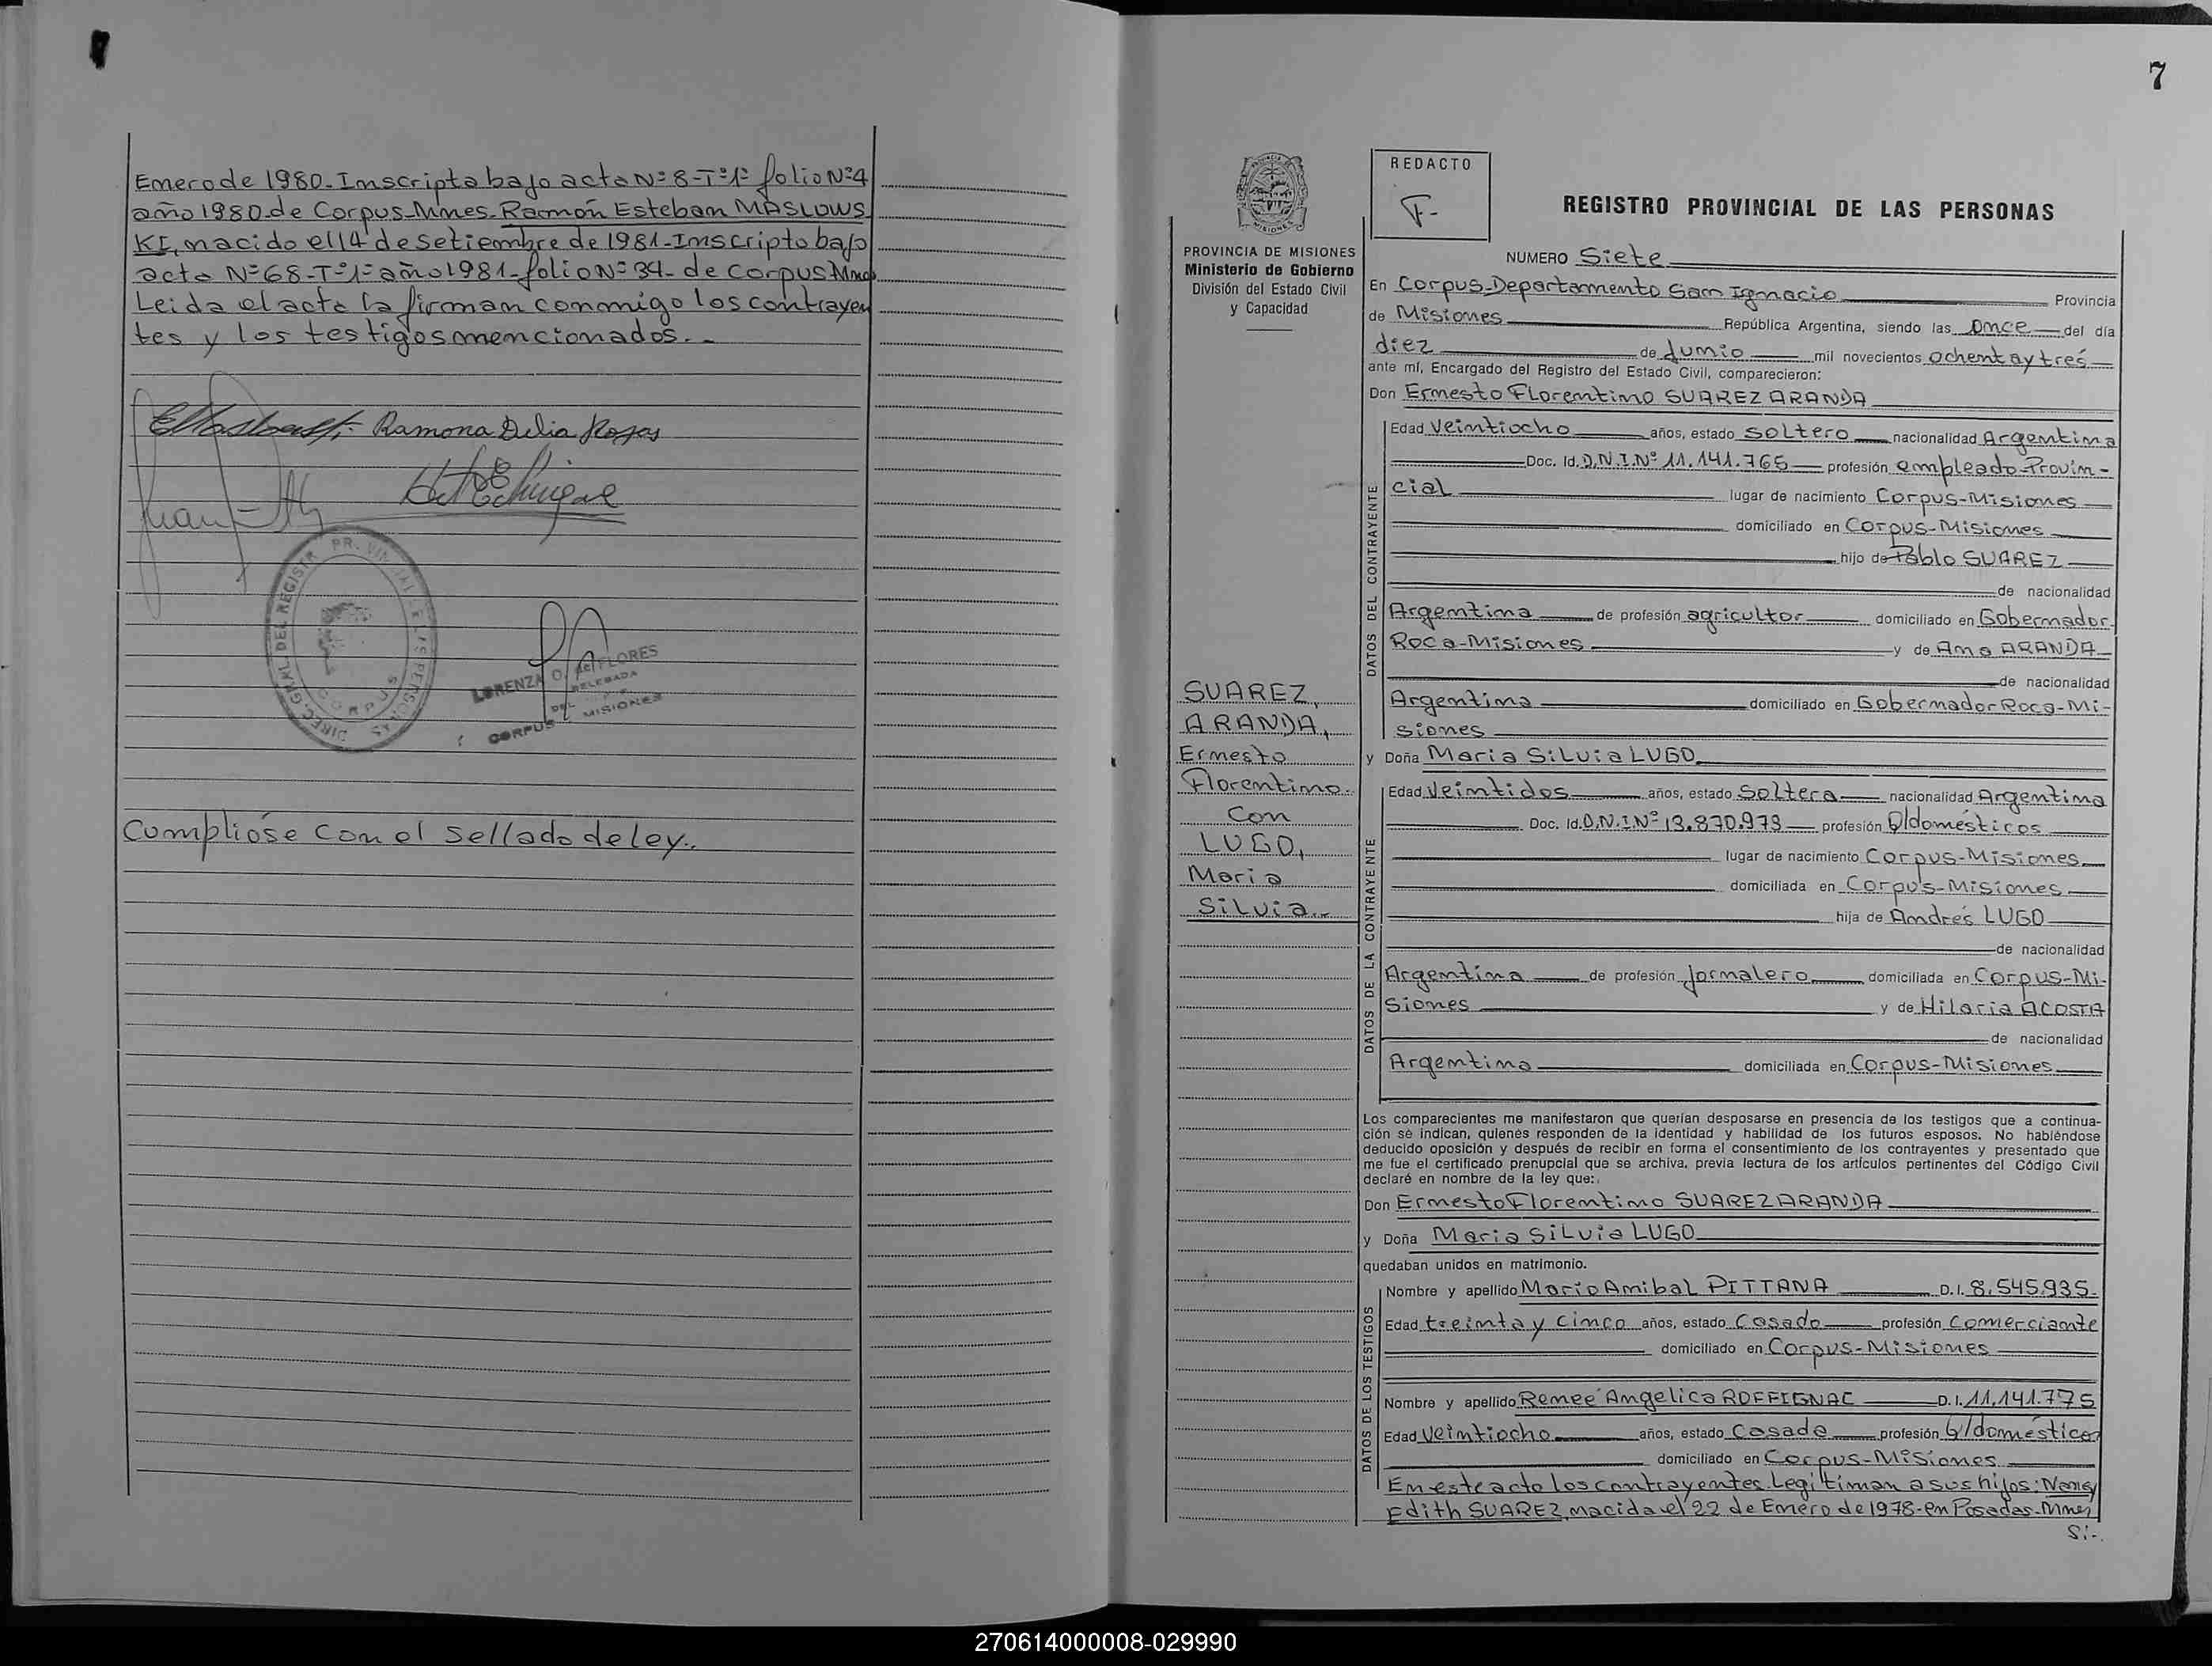 Enero de 1980. Inscripta bajo acta Nº 8-Tº1º folio Nº4
año 1980 de Corpus-Mnes. Ramón Esteban MASLOWS
KI, nacido el 14 de setiembre de 1981-Inscripto bajo
acta Nº 68-Tº1º año 1981-folio Nº 34- de Corpus Mnes
Leida el acta la firman conmigo los contrayen
tes y los testigos mencionados.-
Ramona Delia Rojas
Juan
DIREC. GRAL DEL REGISTR PR. VINCIAL E LAS PERSONAS
CORPUS
LORENZA O. de FLORES
DELEGADA
DEL
CORPUS MISIONES
Cumplióse con el sellado de ley..
7
PROVINCIA DE MISIONES
Ministerio de Gobierno
División del Estado Civil
y Capacidad
REDACTO
F-
REGISTRO PROVINCIAL DE LAS PERSONAS
NUMERO Siete
En Corpus-Departamento San Ignacio Provincia
de Misiones República Argentina, siendo las once del día
diez de Junio mil novecientos ochenta y tres
ante mí, Encargado del Registro del Estado Civil, comparecieron:
Don Ernesto Florentino SUAREZ ARANDA
DATOS DEL CONTRAYENTE
Edad Veintiocho años, estado soltero nacionalidad Argentina
Doc. Id. D.N.I.Nº 11.141.765 profesión empleado Provin-
cial lugar de nacimiento Corpus-Misiones
domiciliado en Corpus-Misiones
hijo de Pablo SUAREZ
de nacionalidad
Argentina de profesión agricultor domiciliado en Gobernador
Roca-Misiones y de Ana ARANDA
de nacionalidad
Argentina domiciliado en Gobernador Roca-Mi-
siones
SUAREZ,
ARANDA,
Ernesto
Florentino.
Con
LUGO,
Maria
Silvia..
y Doña Maria Silvia LUGO
DATOS DE LA CONTRAYENTE
Edad Veintidos años, estado Soltera nacionalidad Argentina
Doc. Id. D.N.I.Nº 13.870.973 profesión Q/domésticos
lugar de nacimiento Corpus-Misiones
domiciliada en Corpus-Misiones
hija de Andrés LUGO
de nacionalidad
Argentina de profesión jornalero domiciliada en Corpus-Mi-
siones y de Hilaria ACOSTA
de nacionalidad
Argentina domiciliada en Corpus-Misiones
Los comparecientes me manifestaron que querían desposarse en presencia de los testigos que a continua-
ción se indican, quienes responden de la identidad y habilidad de los futuros esposos. No habiéndose
deducido oposición y después de recibir en forma el consentimiento de los contrayentes y presentado que
me fue el certificado prenupcial que se archiva, previa lectura de los artículos pertinentes del Código Civil
declaré en nombre de la ley que:
Don Ernesto Florentino SUAREZ ARANDA
y Doña Maria Silvia LUGO
quedaban unidos en matrimonio.
DATOS DE LOS TESTIGOS
Nombre y apellido Mario Anibal PITTANA D.I. 8.545.935-
Edad treinta y cinco años, estado Casado profesión Comerciante
domiciliado en Corpus-Misiones
Nombre y apellido Renee Angelica ROFFIGNAC D.I. 11.141.775
Edad Veintiocho años, estado Casada profesión Q/domésticos
domiciliado en Corpus-Misiones
En este acto los contrayentes Legitiman a sus hijos: Nancy
Edith SUAREZ, nacida el 22 de Enero de 1978-en Posadas-Mnes
Si-.
270614000008-029990